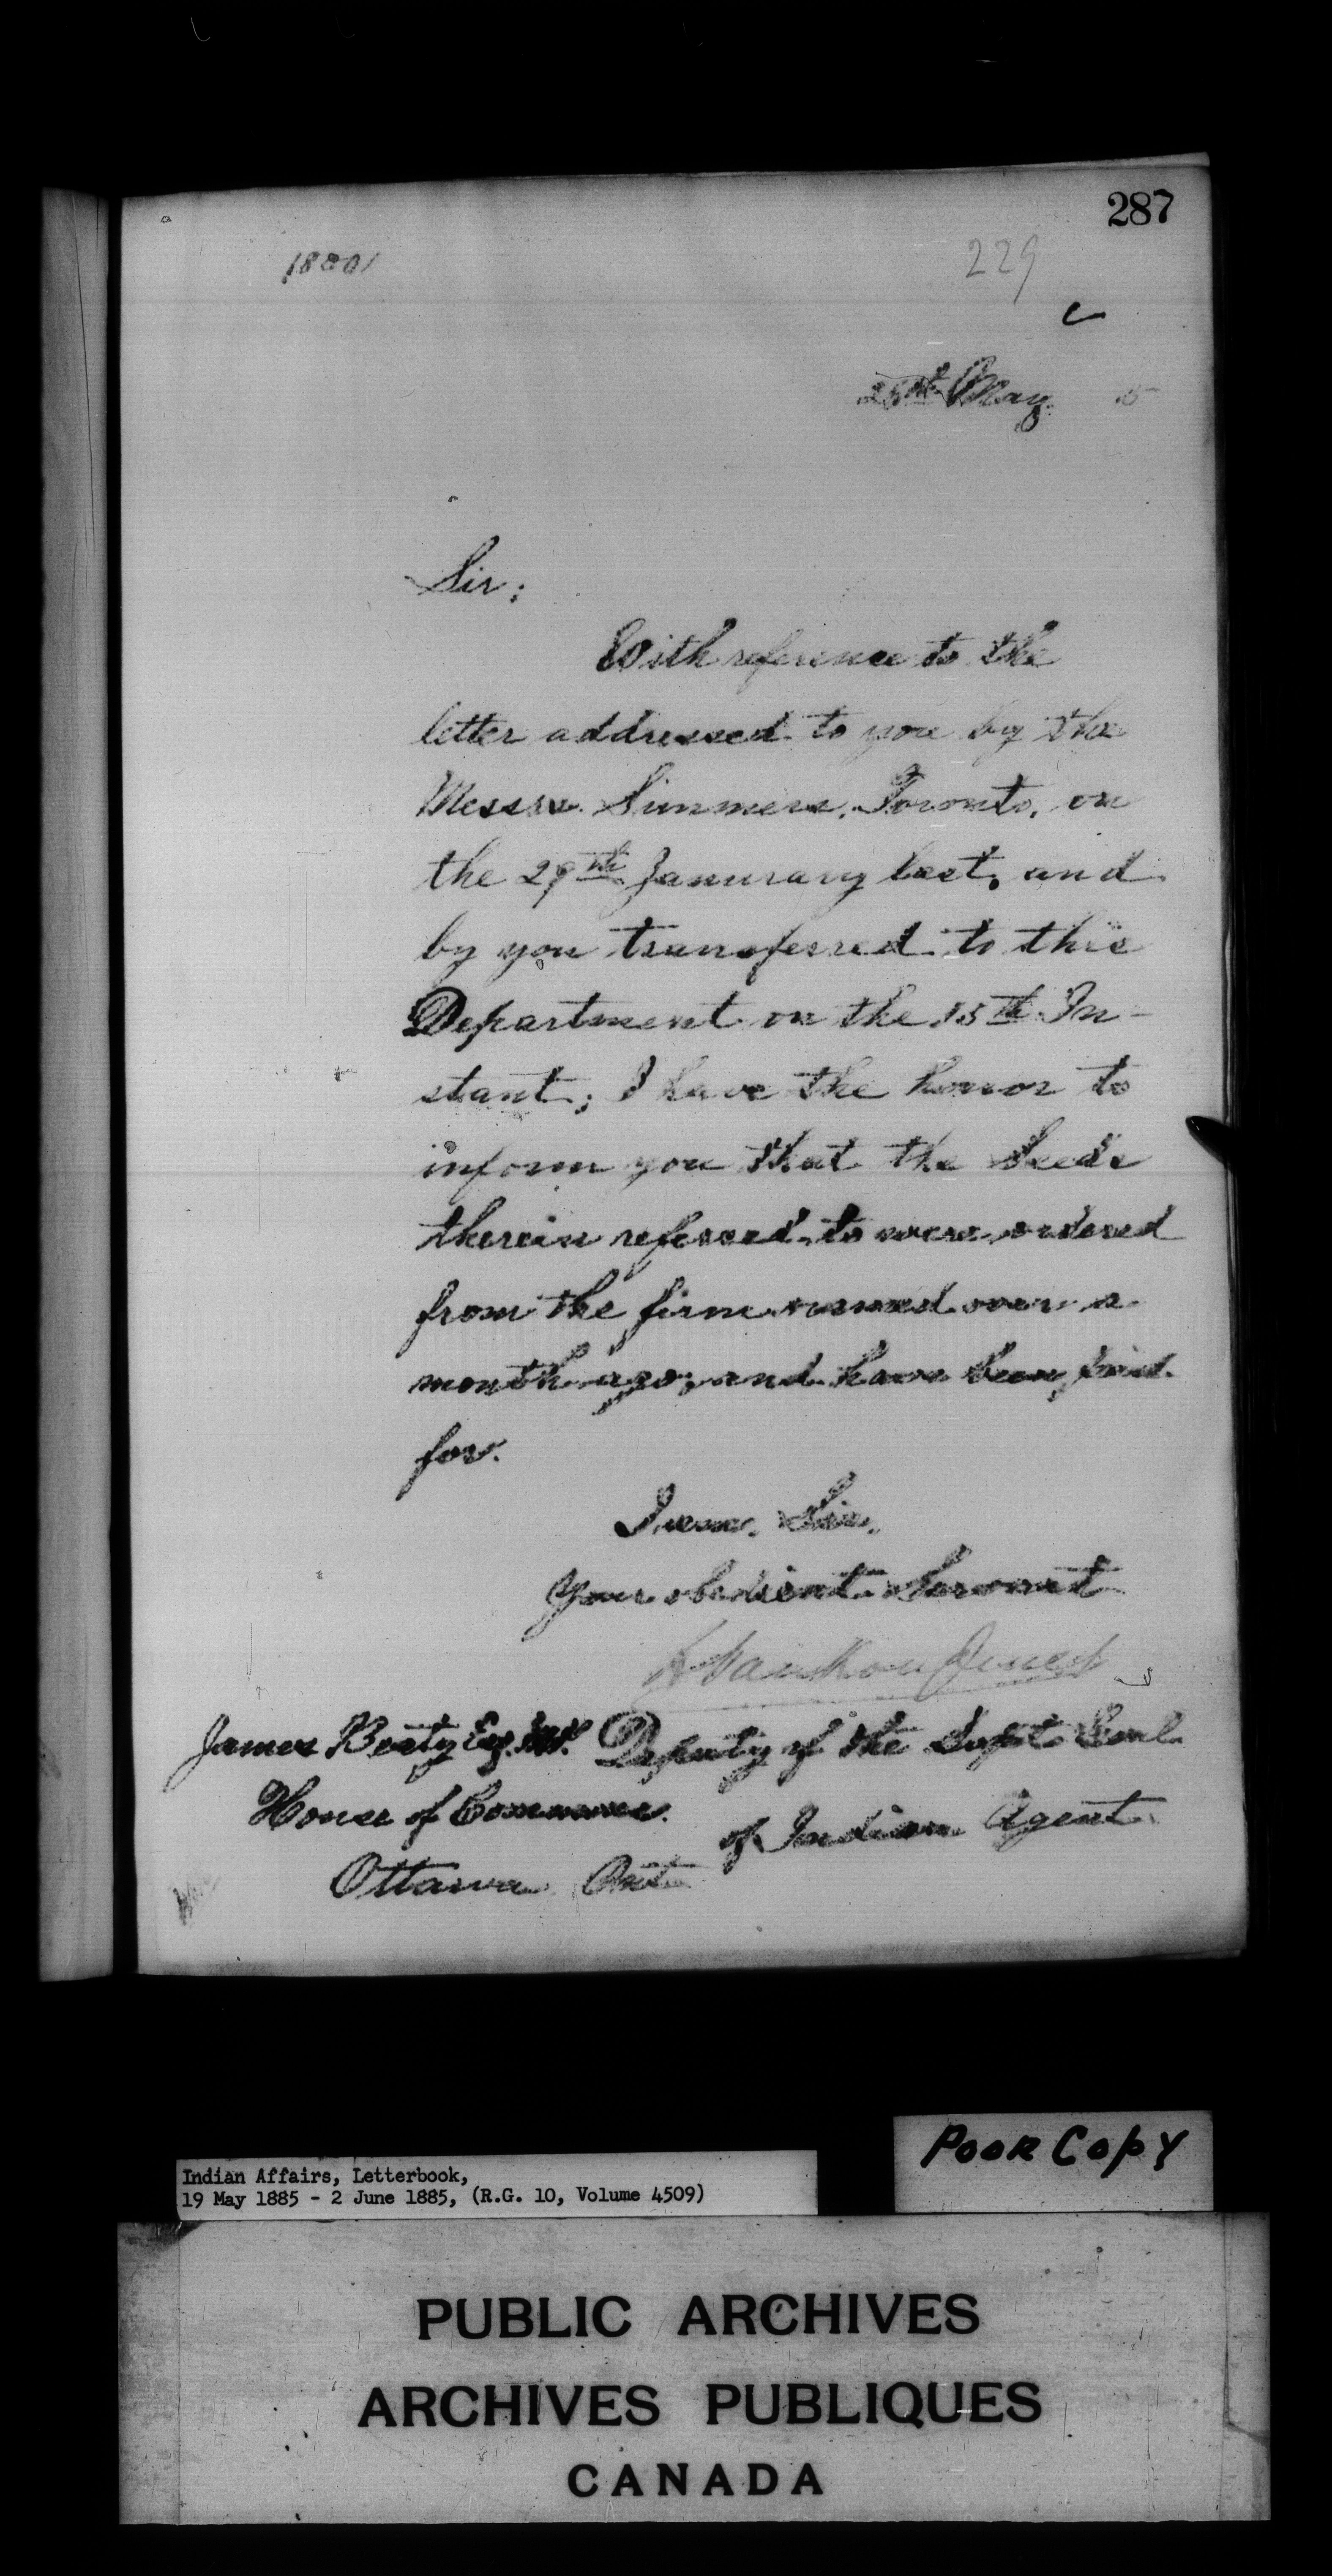 287
18801
229
May 5
Sir;
With reference to the
letter addressed to you by the
Messrs. Simmers, Toronto, on
the 29th Janurary last, and
by you transferred to this
Department on the 15th In-
stant; I have the honor to
inform you that the Seeds
therein referred to were ordered
from the firm named over a
month ago, and have been paid
for.
I am, Sir,
Your obedient Servant
L VanKoughnet
James Beaty Esq. M.P. Deputy of the Supt. Genl.
House of Commons. of Indian Agent
Ottawa Ont
Poor Copy
Indian Affairs, Letterbook,
19 May 1885 - 2 June 1885, (R.G. 10, Volume 4509)
PUBLIC ARCHIVES
ARCHIVES PUBLIQUES
CANADA